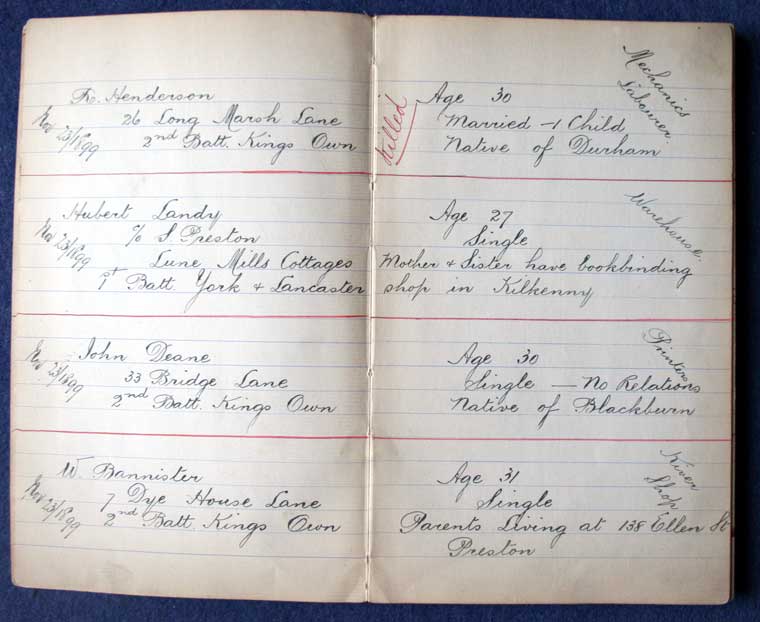 R. Henderson
Nov 23/1899
26 Long Marsh Lane
2nd Batt. Kings Own
Killed
Age 30
Married - 1 Child
Native of Durham
Mechanics
Labourer.
Hubert Landy
Nov 23/1899
c/o S. Preston
Lune Mills Cottages
1st Batt York & Lancaster
Age 27
Single
Mother & Sister have bookbinding
shop in Kilkenny
Warehouse.
John Deane
Nov 23/1899
33 Bridge Lane
2nd Batt. Kings Own
Age 30
Single - No Relations
Native of Blackburn
Printers
W. Bannister
Nov 23/1899
7 Dye House Lane
2nd Batt. Kings Own
Age 31
Single
Parents Living at 138 Ellen St
Preston
Shop